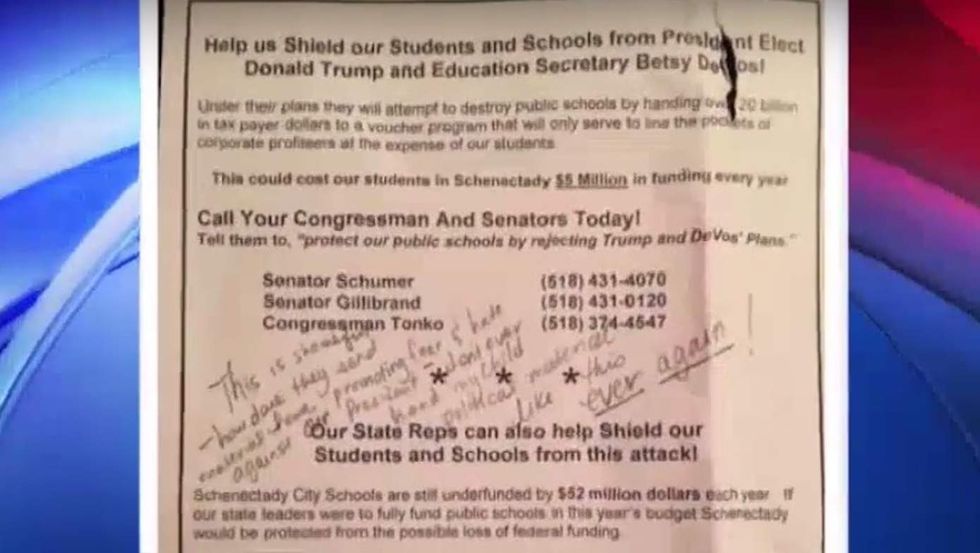 Help us Shield our Students and Schools from President Elect
Donald Trump and Education Secretary Betsy DeVos!
Under their plans they will attempt to destroy public schools by handing over 20 billion
in tax payer dollars to a voucher program that will only serve to line the pockets of
corporate profiteers at the expense of our students
This could cost our students in Schenectady $5 Million in funding every year
Call Your Congressman And Senators Today!
Tell them to, "protect our public schools by rejecting Trump and DeVos' Plans."
Senator Schumer (518) 431-4070
Senator Gillibrand (518) 431-0120
Congressman Tonko (518) 374-4547
This is shameful
- how dare they send
material home promoting fear & hate
against our President. Dont ever
hand my child
political material
like this
ever again!
* * *
Our State Reps can also help Shield our
Students and Schools from this attack!
Schenectady City Schools are still underfunded by $52 million dollars each year If
our state leaders were to fully fund public schools in this year's budget Schenectady
would be protected from the possible loss of federal funding.